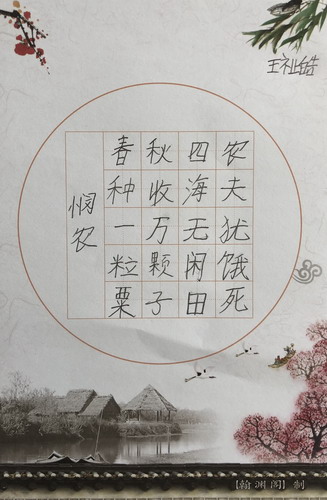 王祉皓
悯农
春种一粒粟
秋收万颗子
四海无闲田
农夫犹饿死
【翰渊阁】制